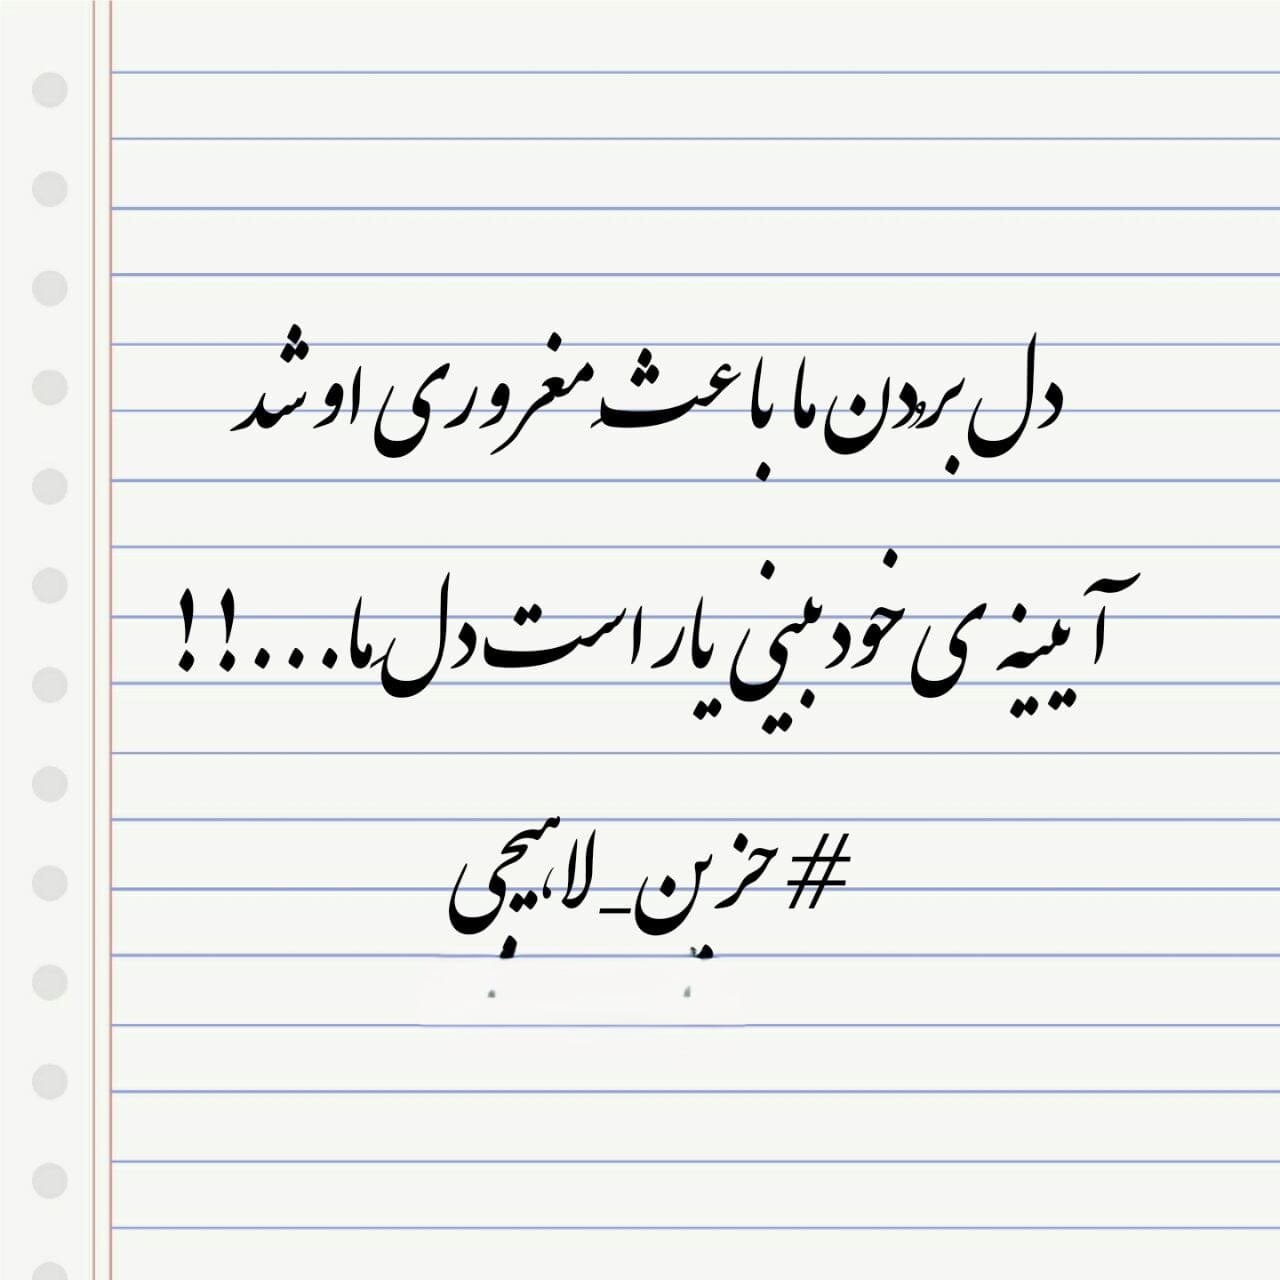 دل بردن ما باعثِ مغروری او شد
آیینه ی خودبینی یار است دلِ ما...!!
#حزین_لاهیجی